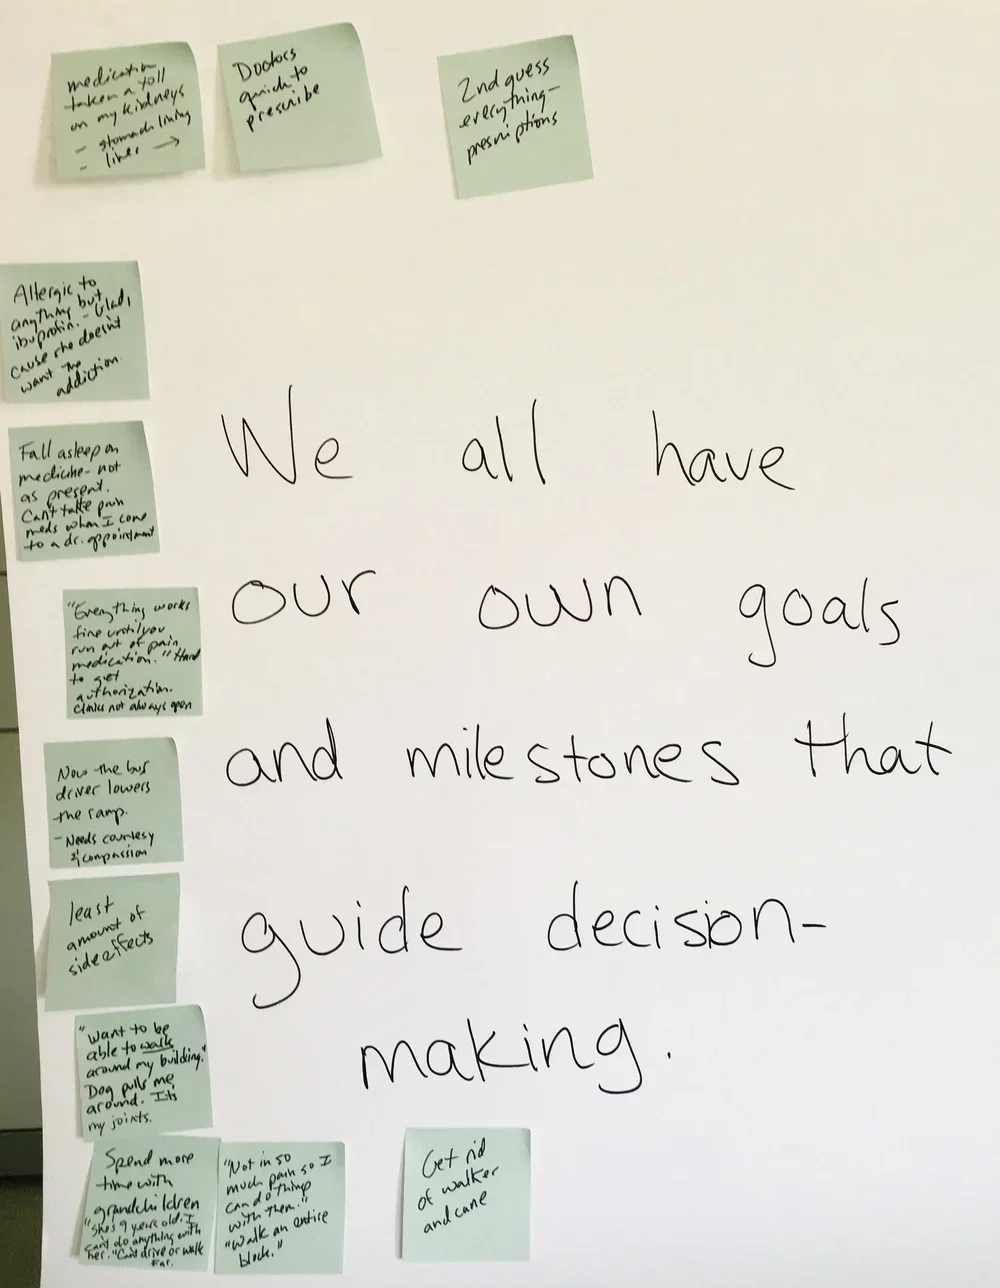 medication
taken a toll
on my kidneys
- stomach lining
- liver →
Doctors
quick to
prescribe
2nd guess
everything-
prescriptions
Allergic to
anything but
ibuprofin. - Glad,
cause she doesn't
want the
addiction
Fall asleep on
medicine - not
as present.
Can't take pain
meds when I come
to a dr. appointment
"Everything works
fine until you
run out of pain
medication." Hard
to get
authorization.
Clinics not always open
Now the bus
driver lowers
the ramp.
- Needs courtesy
& compassion
least
amount of
side effects
"Want to be
able to walk
around my building."
Dog pulls me
around. Its
my joints.
Spend more
time with
grandchildren
"She's 9 years old. I
can't do anything with
her." Can't drive or walk
far.
"Not in so
much pain so I
can do things
with them."
"Walk an entire
block."
Get rid
of walker
and cane
We all have
our own goals
and milestones that
guide decision-
making.